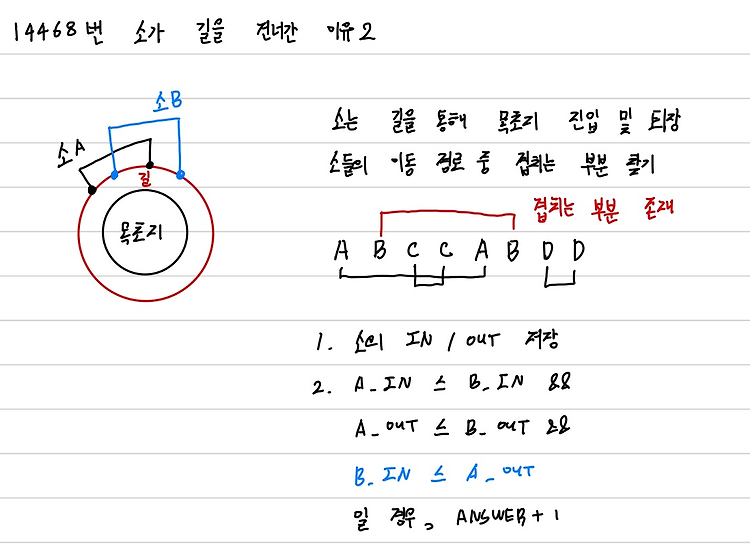 14468번 소가 길을 건너간 이유 2
소B
소A
길
목초지
소는 길을 통해 목초지 진입 및 퇴장
소들의 이동 경로 중 겹치는 부분 찾기
겹치는 부분 존재
A B C C A B D D
1. 소의 IN / OUT 저장
2. A_IN ≤ B_IN &&
A_OUT ≤ B_OUT &&
B_IN ≤ A_OUT
일 경우, ANSWER + 1